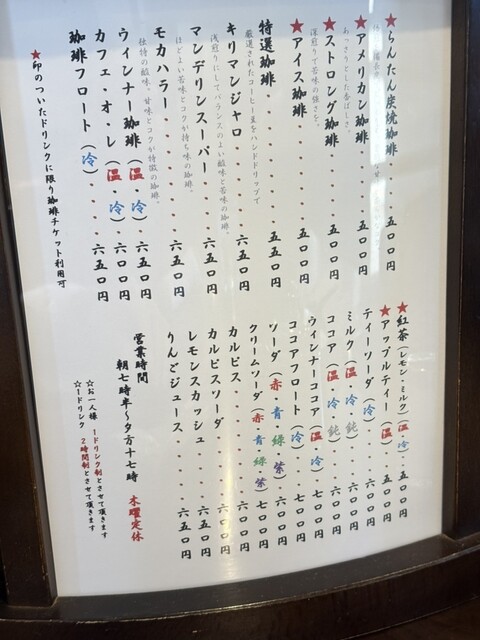 ★らんたん炭焼珈琲・・・五〇〇円
★アメリカン珈琲・・・・五〇〇円
あっさりとした香ばしさ。
★ストロング珈琲・・・・五〇〇円
深煎りで苦味の強さを。
★アイス珈琲・・・・・・五〇〇円
特選珈琲・・・・・・・・五五〇円
厳選されたコーヒー豆をハンドドリップで
キリマンジャロ・・・・・六五〇円
浅煎りにしてバランスのよい酸味と苦味の珈琲。
マンデリンスーパー・・・六五〇円
ほどよい苦味とコクが持ち味の珈琲。
モカハラー・・・・・・・六五〇円
独特の酸味。甘味とコクが特徴の珈琲。
ウィンナー珈琲(温・冷)・六五〇円
カフェ・オ・レ(温・冷)・六〇〇円
珈琲フロート(冷)・・・・六五〇円
★印のついたドリンクに限り珈琲チケット利用可
★紅茶(レモン・ミルク)(温・冷)五〇〇円
★アップルティー(温)・・五〇〇円
ティーソーダ(冷)・・・・六〇〇円
ミルク(温・冷・鈍)・・・六〇〇円
ココア(温・冷・鈍)・・・六〇〇円
ウィンナーココア(温・冷)七〇〇円
ココアフロート(冷)・・・七〇〇円
ソーダ(赤・青・緑・紫)・六〇〇円
クリームソーダ(赤・青・緑・紫)七〇〇円
カルピス・・・・・・・・六〇〇円
カルピスソーダ・・・・・六五〇円
レモンスカッシュ・・・・六五〇円
りんごジュース・・・・・六五〇円
営業時間
朝七時半～夕方十七時 木曜定休
☆お一人様 1ドリンク制とさせて頂きます
☆1ドリンク 2時間制とさせて頂きます